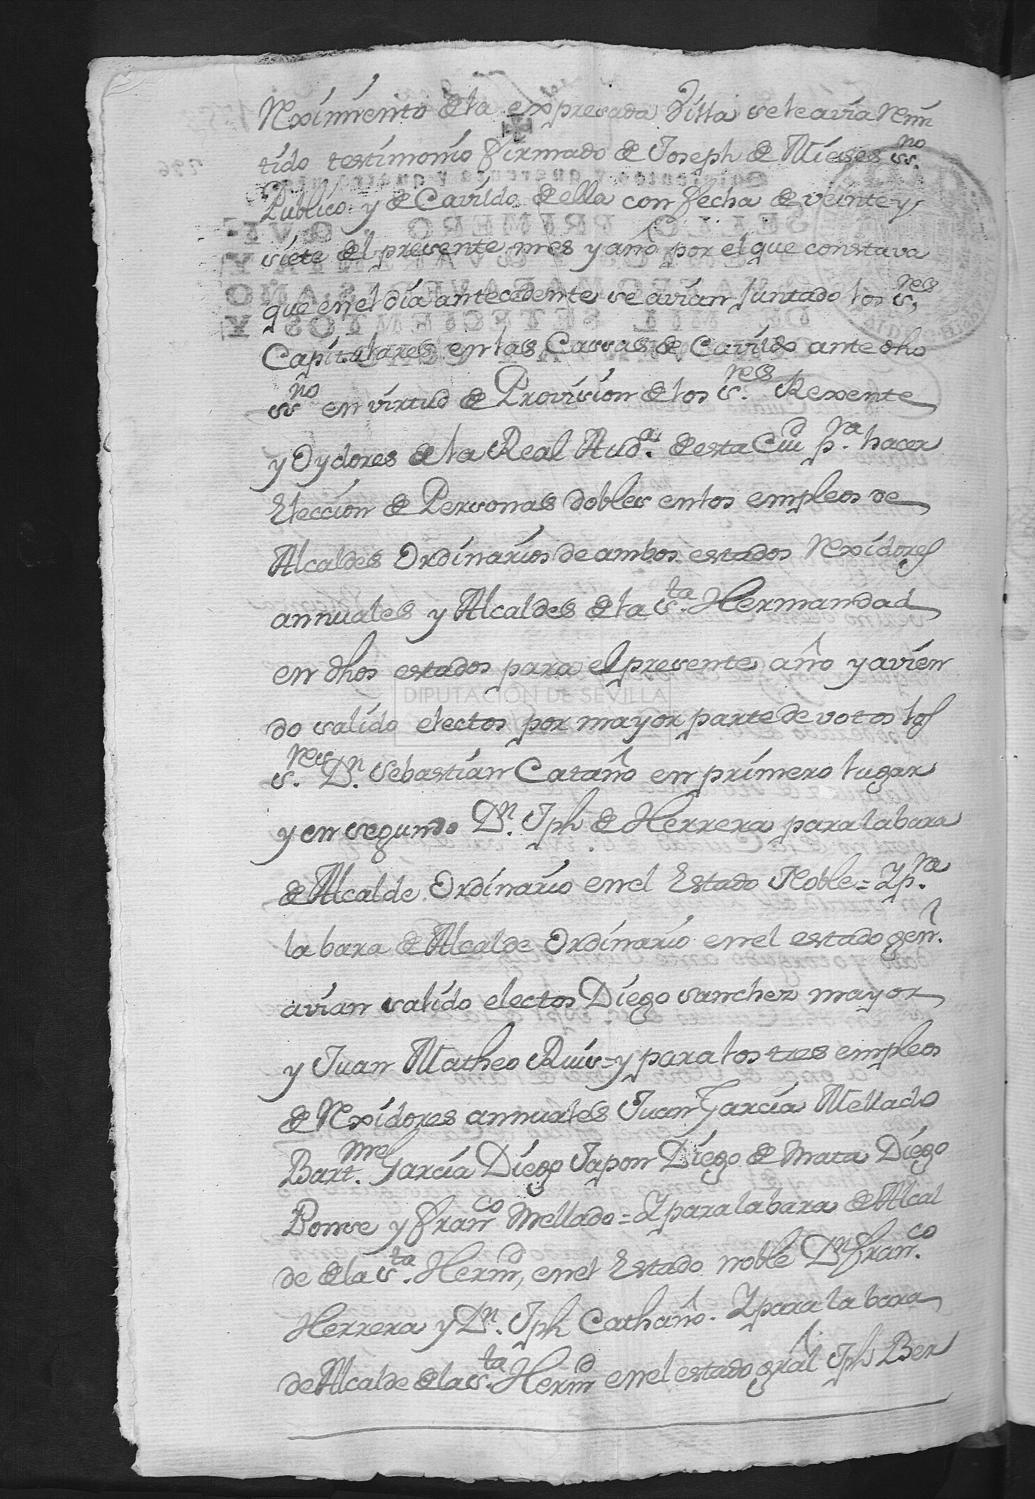 Rexsimiento de la expresada Villa se le avia Remi
tido testimonio firmado de Joseph de Mieses ssno
Publico y de Cavildo de ella con fecha de veinte y
siete del presente mes y año por el que constava
que en el dia antecedente se avian Juntado los sres
Capitulares en las Cassas de Cavildo ante dho
ssno en virtud de Provision de los sres Rexente
y Oydores de la Real Auda de esta Ciud pa hacer
Eleccion de Personas dobles en los empleos de
Alcaldes Ordinarios de ambos estados Rexidores
annuales y Alcaldes de la sta Hermandad
en dhos estados para el presente año y avien
do salido electos por mayor parte de votos los
sres Dn Sebastian Cataño en primero lugar
y en segundo Dn Jph de Herrera para la bara
de Alcalde Ordinario en el Estado Noble = Y pra
la bara de Alcalde Ordinario en el estado genl
avian salido electos Diego sanchez mayor
y Juan Matheo Ruis = y para los tres empleos
de Rexidores annuales Juan Garcia Mellado
Bartme Garcia Diego Japon Diego de Mata Diego
Ponse y Franco Mellado = Y para la bara de Alcal
de de la sta Hermd en el Estado noble Dn Franco
Herrera y Dn Jph Cathaño. Y para la bara
de Alcalde de la sta Hermd en el estado gral Jph Ber
DIPUTACIÓN DE SEVILLA